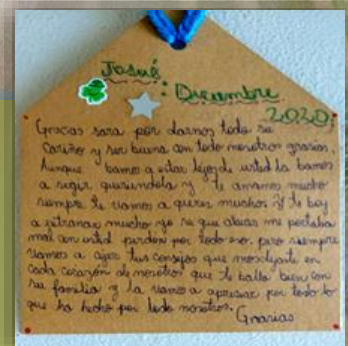 Josué:
Diciembre
2020
Gracias sara por darnos todo su
cariño y ser buena con todo nosotros grasias,
Aunque bamo a estar lejos de usted la bamos
a segir queriendola y te amamos mucho
siempre te vamos a queres muchos y te boy
a extranar mucho yo se que abeces me portaba
mal con usted perdon por todo eso, pero siempre
vamos a ager tus consejos que nos dejaste en
cada corazón de nosotros que te balla bien con
su familia y la vamo a apresiar por todo lo
que ha hecho por todo nosotros.
Gracias